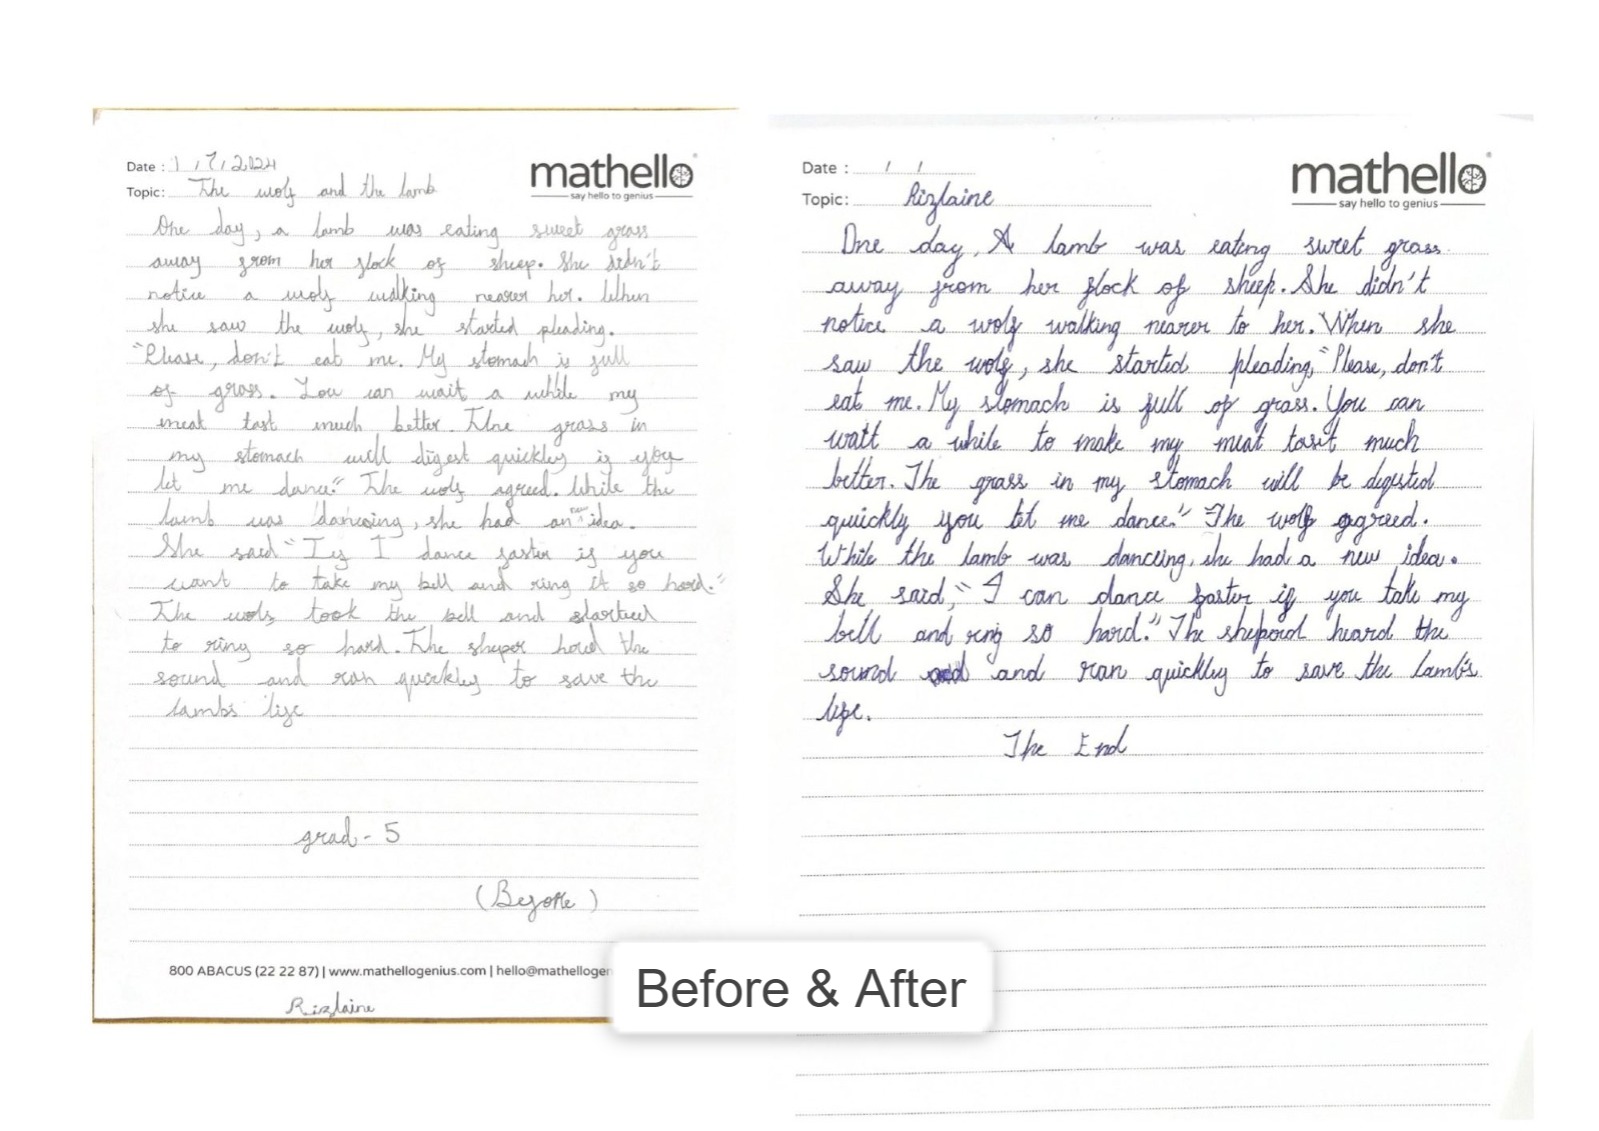 Date : 1 / 7 / 2024
mathello
say hello to genius
Topic: The wolf and the lamb
One day, a lamb was eating sweet grass
away from her flock of sheep. She didn't
notice a wolf walking nearer her. When
she saw the wolf, she started pleading.
"Please, don't eat me. My stomach is full
of grass. You can wait a while my
meat tast much better. The grass in
my stomach will digest quickley if you
let me dance." The wolf agreed. While the
lamb was dancing, she had an new idea.
She said " If I dance faster if you
want to take my bell and ring it so hard."
The wolf took the bell and started
to ring so hard. The sheper herd the
sound and ran quickley to save the
lamb's life
grad - 5
(Before)
800 ABACUS (22 22 87) | www.mathellogenius.com | hello@mathellogen
Rizlaine
Date : / /
mathello
say hello to genius
Topic: Rizlaine
One day, A lamb was eating sweet grass
away from her flock of sheep. She didn't
notice a wolf walking nearer to her. When she
saw the wolf, she started pleading, "Please, don't
eat me. My stomach is full of grass. You can
wait a while to make my meat tast much
better. The grass in my stomach will be digested
quickly you let me dance." The wolf agreed.
While the lamb was dancing, she had a new idea.
She said, " I can dance faster if you take my
bell and ring so hard." The sheperd heard the
sound and ran quickley to save the lamb's
life.
The End
Before & After